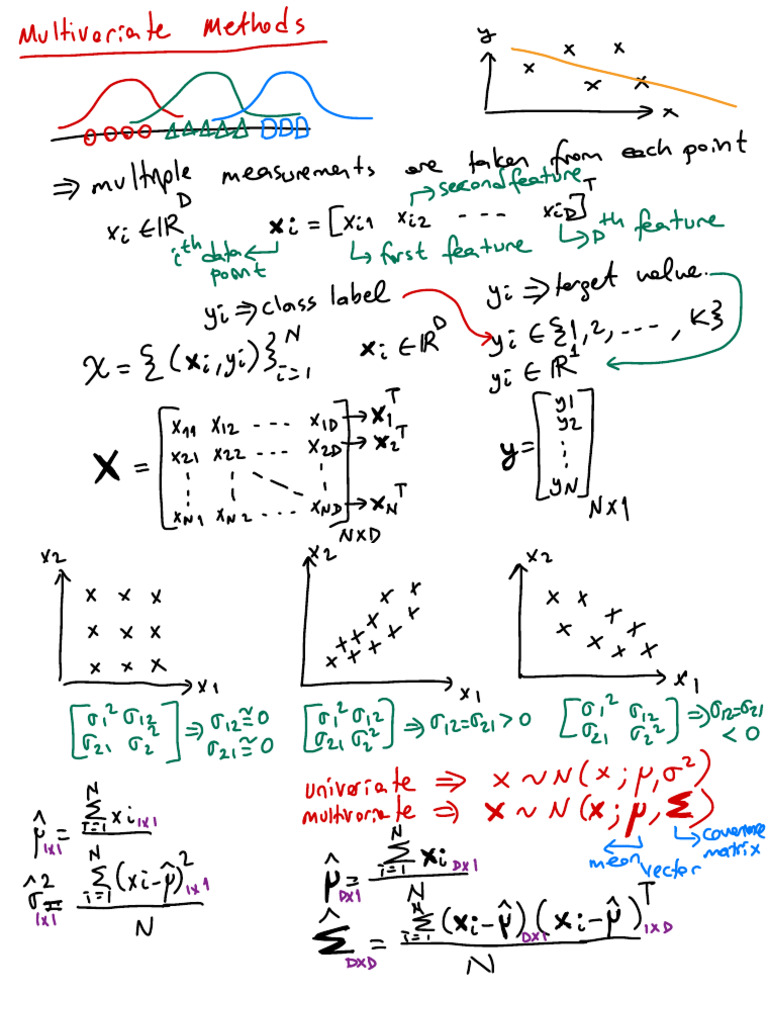 Multivariate Methods
y
x
⇒ multiple measurements are taken from each point
xi ∈ ℝ^D xi = [xi1 xi2 --- xiD]^T
→ second feature
i^th data point
↳ first feature
↳ D^th feature
yi ⇒ class label
yi ⇒ target value.
X = {(xi, yi)}_{i=1}^N xi ∈ ℝ^D yi ∈ {1, 2, ----, K}
yi ∈ ℝ^1
X = [x11 x12 --- x1D → x1^T
x21 x22 --- x2D → x2^T
xN1 xN2 ---- xND] → xN^T
N×D
y = [y1
y2
⋮
yN] N×1
x2 x2 x2
x1 x1 x1
[σ1² σ12
σ21 σ2²] ⇒ σ12 ≅ 0
σ21 ≅ 0
[σ1² σ12
σ21 σ2²] ⇒ σ12=σ21 > 0
[σ1² σ12
σ21 σ2²] ⇒ σ12=σ21
< 0
univariate ⇒ x ~ N(x; μ, σ²)
multivariate ⇒ x ~ N(x; μ, Σ)
mean vector
↳ covariance matrix
μ̂ 1x1 = Σ_{i=1}^N xi 1x1
σ̂² 1x1 = Σ_{i=1}^N (xi-μ̂)² 1x1 / N
μ̂ D×1 = Σ_{i=1}^N xi D×1 / N
Σ̂ D×D = Σ_{i=1}^N (xi-μ̂) D×1 (xi-μ̂)^T 1×D / N